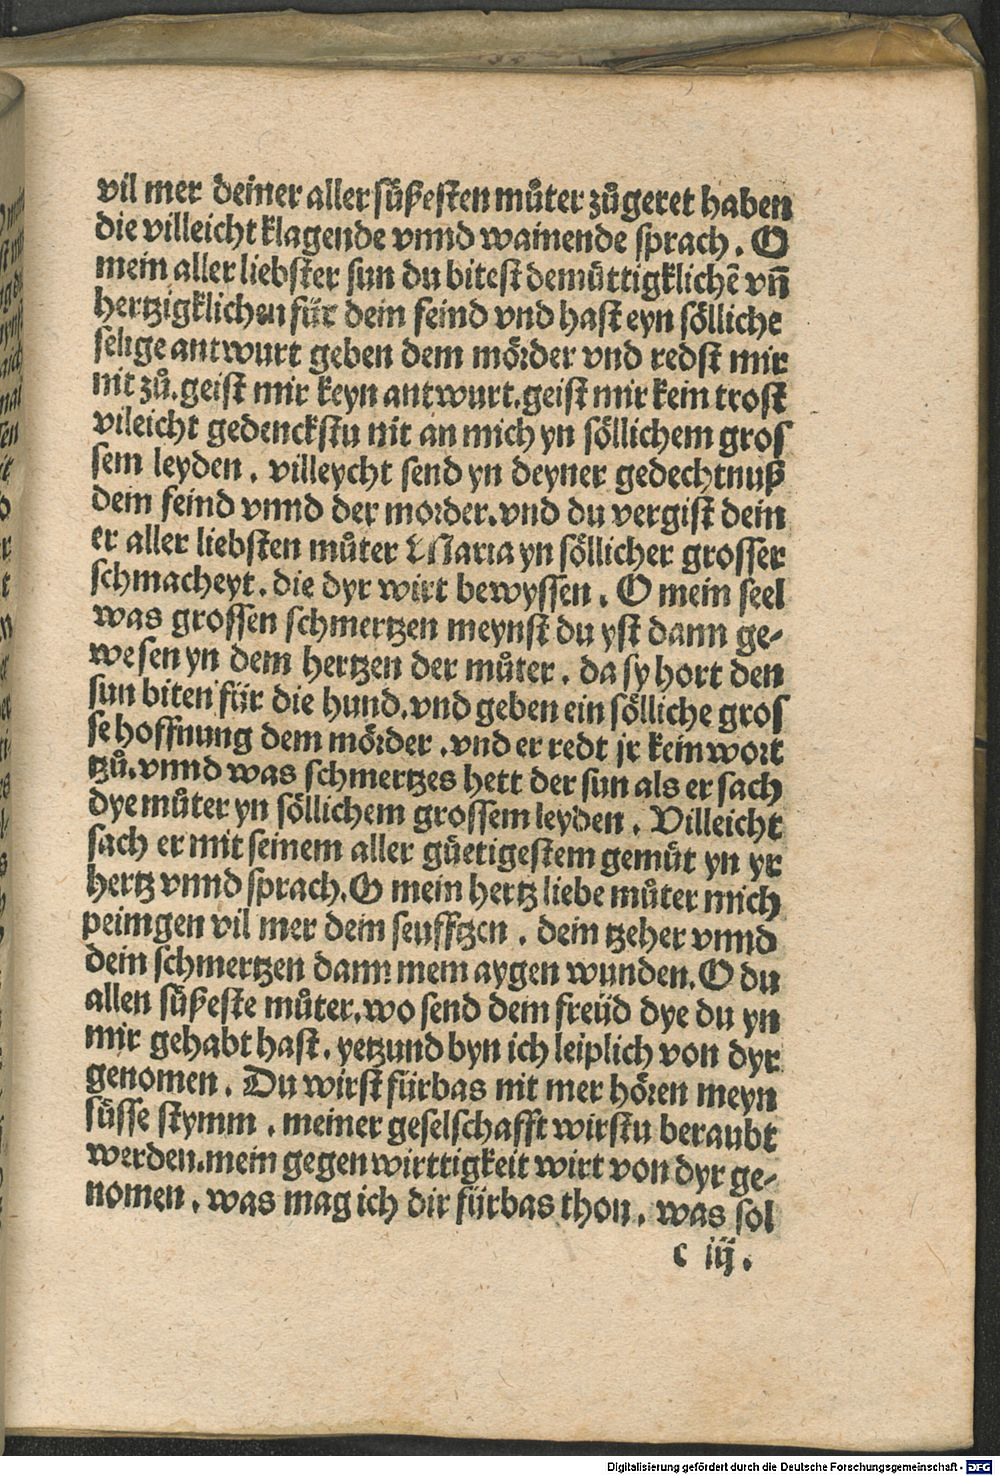 vil mer deiner aller süßesten můter zůgeret haben
die villeicht klagende vnnd wainende sprach. O
mein aller liebster sun du bitest demüttigklichē vn̄
hertzigklichen für dein feind vnd hast eyn sölliche
selige antwurt geben dem mörder vnd redst mir
nit zů. geist mir keyn antwurt. geist mir kein trost
vileicht gedenckstu nit an mich yn söllichem gros
sem leyden. villeycht send yn deyner gedechtnuß
dein feind vnnd der morder. vnd du vergist dein
er aller liebsten můter Maria yn söllicher grosser
schmacheyt. die dyr wirt bewyssen. O mein seel
was grossen schmertzen meynst du yst dann ge-
wesen yn dem hertzen der můter. da sy hort den
sun biten für die hund. vnd geben ein sölliche gros
se hoffnung dem mörder. vnd er redt jr kein wort
tzů. vnnd was schmertzes hett der sun als er sach
dye můter yn söllichem grossem leyden. Villeicht
sach er mit seinem aller güetigestem gemüt yn yr
hertz vnnd sprach. O mein hertz liebe můter mich
peimgen vil mer dein seufftzen. dein tzeher vnnd
dein schmertzen dann mein aygen wunden. O du
allen süßeste můter. wo send dein freüd dye du yn
mir gehabt hast. yetzund byn ich leiplich von dyr
genomen. Du wirst fürbas nit mer hören meyn
süsse stymm. meiner geselschafft wirstu beraubt
werden. mein gegenwirttigkeit wirt von dyr ge-
nomen. was mag ich dir fürbas thon. was sol
c iij.
Digitalisierung gefördert durch die Deutsche Forschungsgemeinschaft - DFG